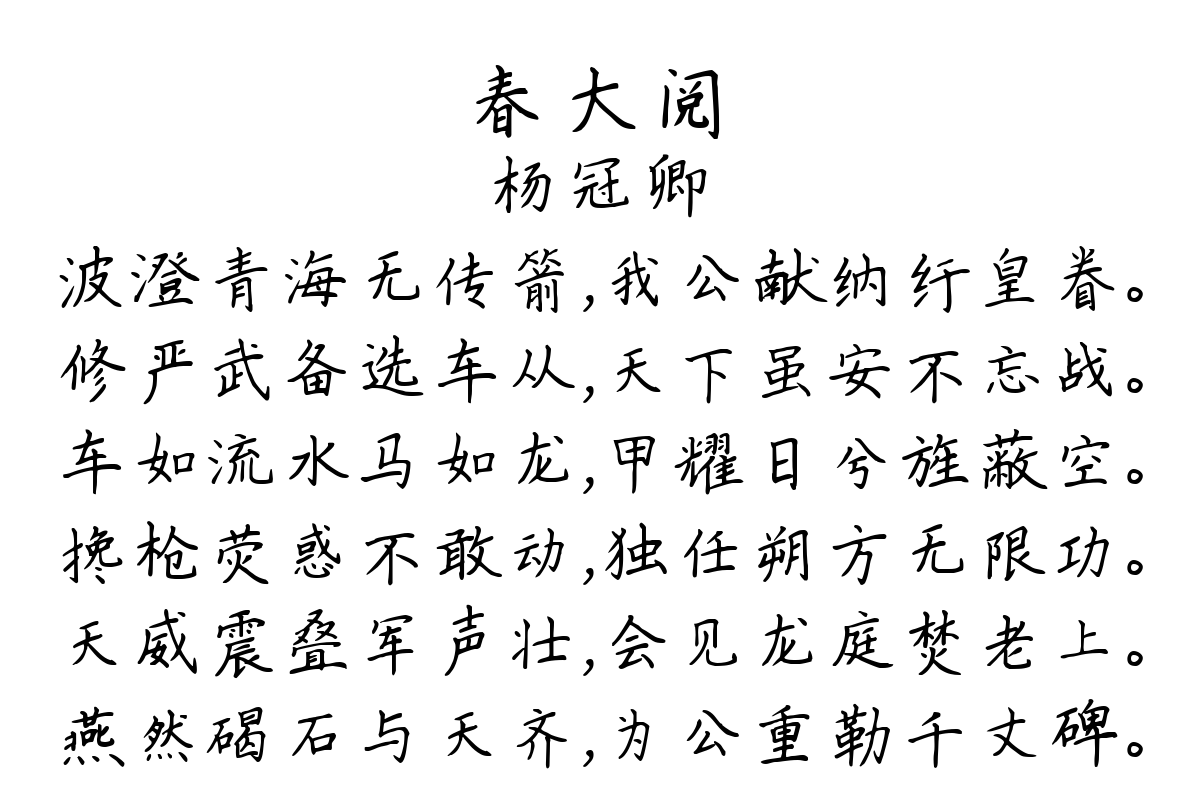 春大阅
杨冠卿
波澄青海无传箭,我公献纳纡皇眷。
修严武备选车从,天下虽安不忘战。
车如流水马如龙,甲耀日兮旌蔽空。
搀枪荧惑不敢动,独任朔方无限功。
天威震叠军声壮,会见龙庭焚老上。
燕然碣石与天齐,为公重勒千丈碑。